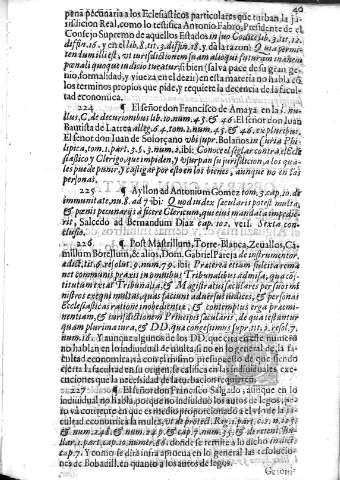 40
pena pecuniaria a los Eclesiasticos particulares que turban la ju-
risdicion Real, como lo testifica Antonio Fabro, Presidente de el
Consejo Supremo de aquellos Estados in suo Codice lib. 3. tit. 12.
diffin. 16. y en el lib. 8. tit. 3. diffin. 18. y dà la razon: Qua permit-
tendum illi est, vt iurisdictionem suam alioqui futuram inanem
pœnali quoque iudicio tueatur. Si bien salva pace de su gran ge-
nio, formalidad, y
en esta materia no habla en
los terminos propios que pide, y requiere la decencia de la facul-
tad economica.
224 ¶ El señor don Francisco de Amaya en la l. nu-
llus, C. de decurionibus lib. 10. num. 45. & 46. El señor don Iuan
Bautista de Larrea alleg. 64. tom. 1. num. 45. & 46. ex pluribus.
El señor don Iuan de Solorçano vbi supr. Bolaños in Curia Phi-
lipica, tom. 1. part. 3. §. 3. num. 2. ibi: Conoce el seglar contra el Ecle-
siastico y Clerigo, que impiden, y vsurpan su jurisdicion, a los qua-
les puede punir, y castigar por esto en los bienes, aunque no en las
personas.
225 ¶ Ayllon ad Antonium Gomez tom. 3. cap. 10. de
immunitate, nu. 8. ad 7. ibi: Quod iudex sæcularis potest multa,
& pœnis pecunarijs afficere Clericum, que eius mandata impedie-
rit, Salcedo ad Bernardum Diaz cap. 102. vers. Sexta con-
clusio.
226 ¶ Post Mastrillum, Torre-Blanca, Zeuallos, Ca-
millum Borellum, & alios, Dom. Gabriel Pareja de instrumentor.
edict. tit. 6. resolut. 9. num. 79. ibi: Præterea etiam
ra ma-
net communis praxis in omnibus Tribunalibus admissa, qua con-
stitutum extat Tribunalia, & Magistratus sæculares per suos mi-
nistros exequi multas, quas faciunt adversus iudices, & personas
Ecclesiasticas ratione inobedientiæ, & contemptus erga præemi-
nentiam, & iurisdictionem Principis sæcularis, de qua testantur
quam plurima iura, & DD. quæ congessimus supr. tit. 2. resol. 7.
num. 18. Y aunque algunos de los DD. que cita en este numero
no hablan en lo individual de multas, si no en lo general de la fa-
cultad economica: và con el mismo presupuesto de que siendo
cierta la facultad en su origen, se califica en las individuales exe-
cuciones que la necesidad de la turbacion requieren.
227 ¶ El señor don Francisco Salgado, aunque en lo
individual no habla, porque no individuò los autos de legos, pe-
ro và corriente en que es medio proporcionado a el vso de la fa-
cultad economica la multa, vt de protect. Reg. 1. part. c. 1. n. 103.
& num. 248. & num. 253. & 2. part. cap. 7. num. 35. & de retent. Bul-
lar. 1. part. cap. 10. numer. 86. donde se remite a lo dicho in dict.
cap. 7. Y como se dirà infra apoya en lo general las resolucio-
nes de Bobadill. en quanto a los autos de legos.
Geroni-